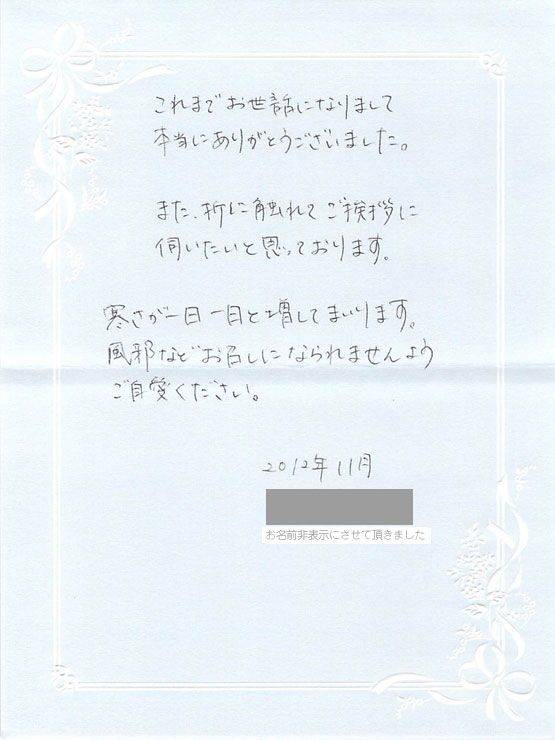 これまでお世話になりまして
本当にありがとうございました。
また、折に触れてご挨拶に
伺いたいと思っております。
寒さが一日一日と増してまいります。
風邪などお召しになられませんよう
ご自愛ください。
2012年11月
お名前非表示にさせて頂きました